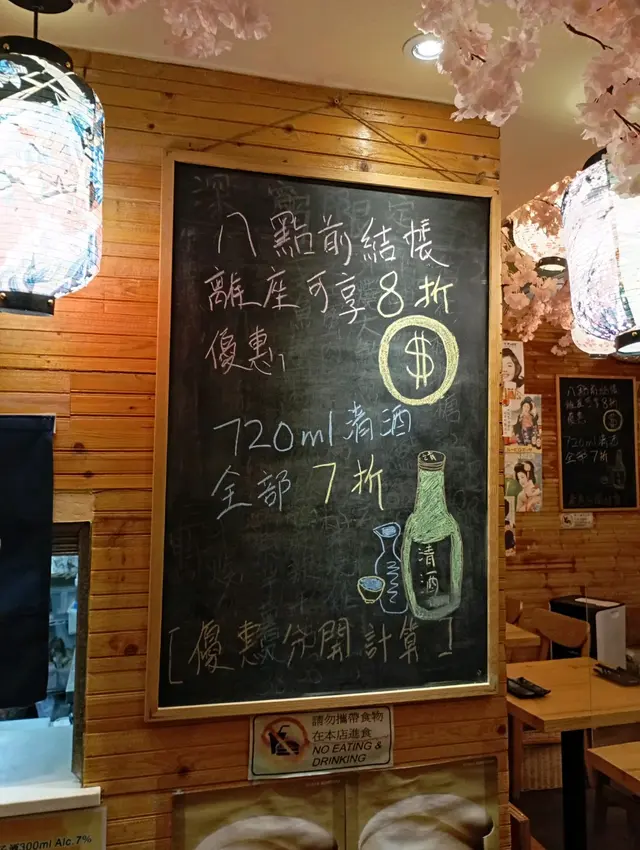 八點前結帳
離座可享8折
優惠
$
720ml清酒
全部7折
清酒
[優惠分開計算]
請勿攜帶食物
在本店進食
NO EATING &
DRINKING
300ml Alc.7%
八點前結帳
離座可享8折
優惠
720ml清酒
全部7折